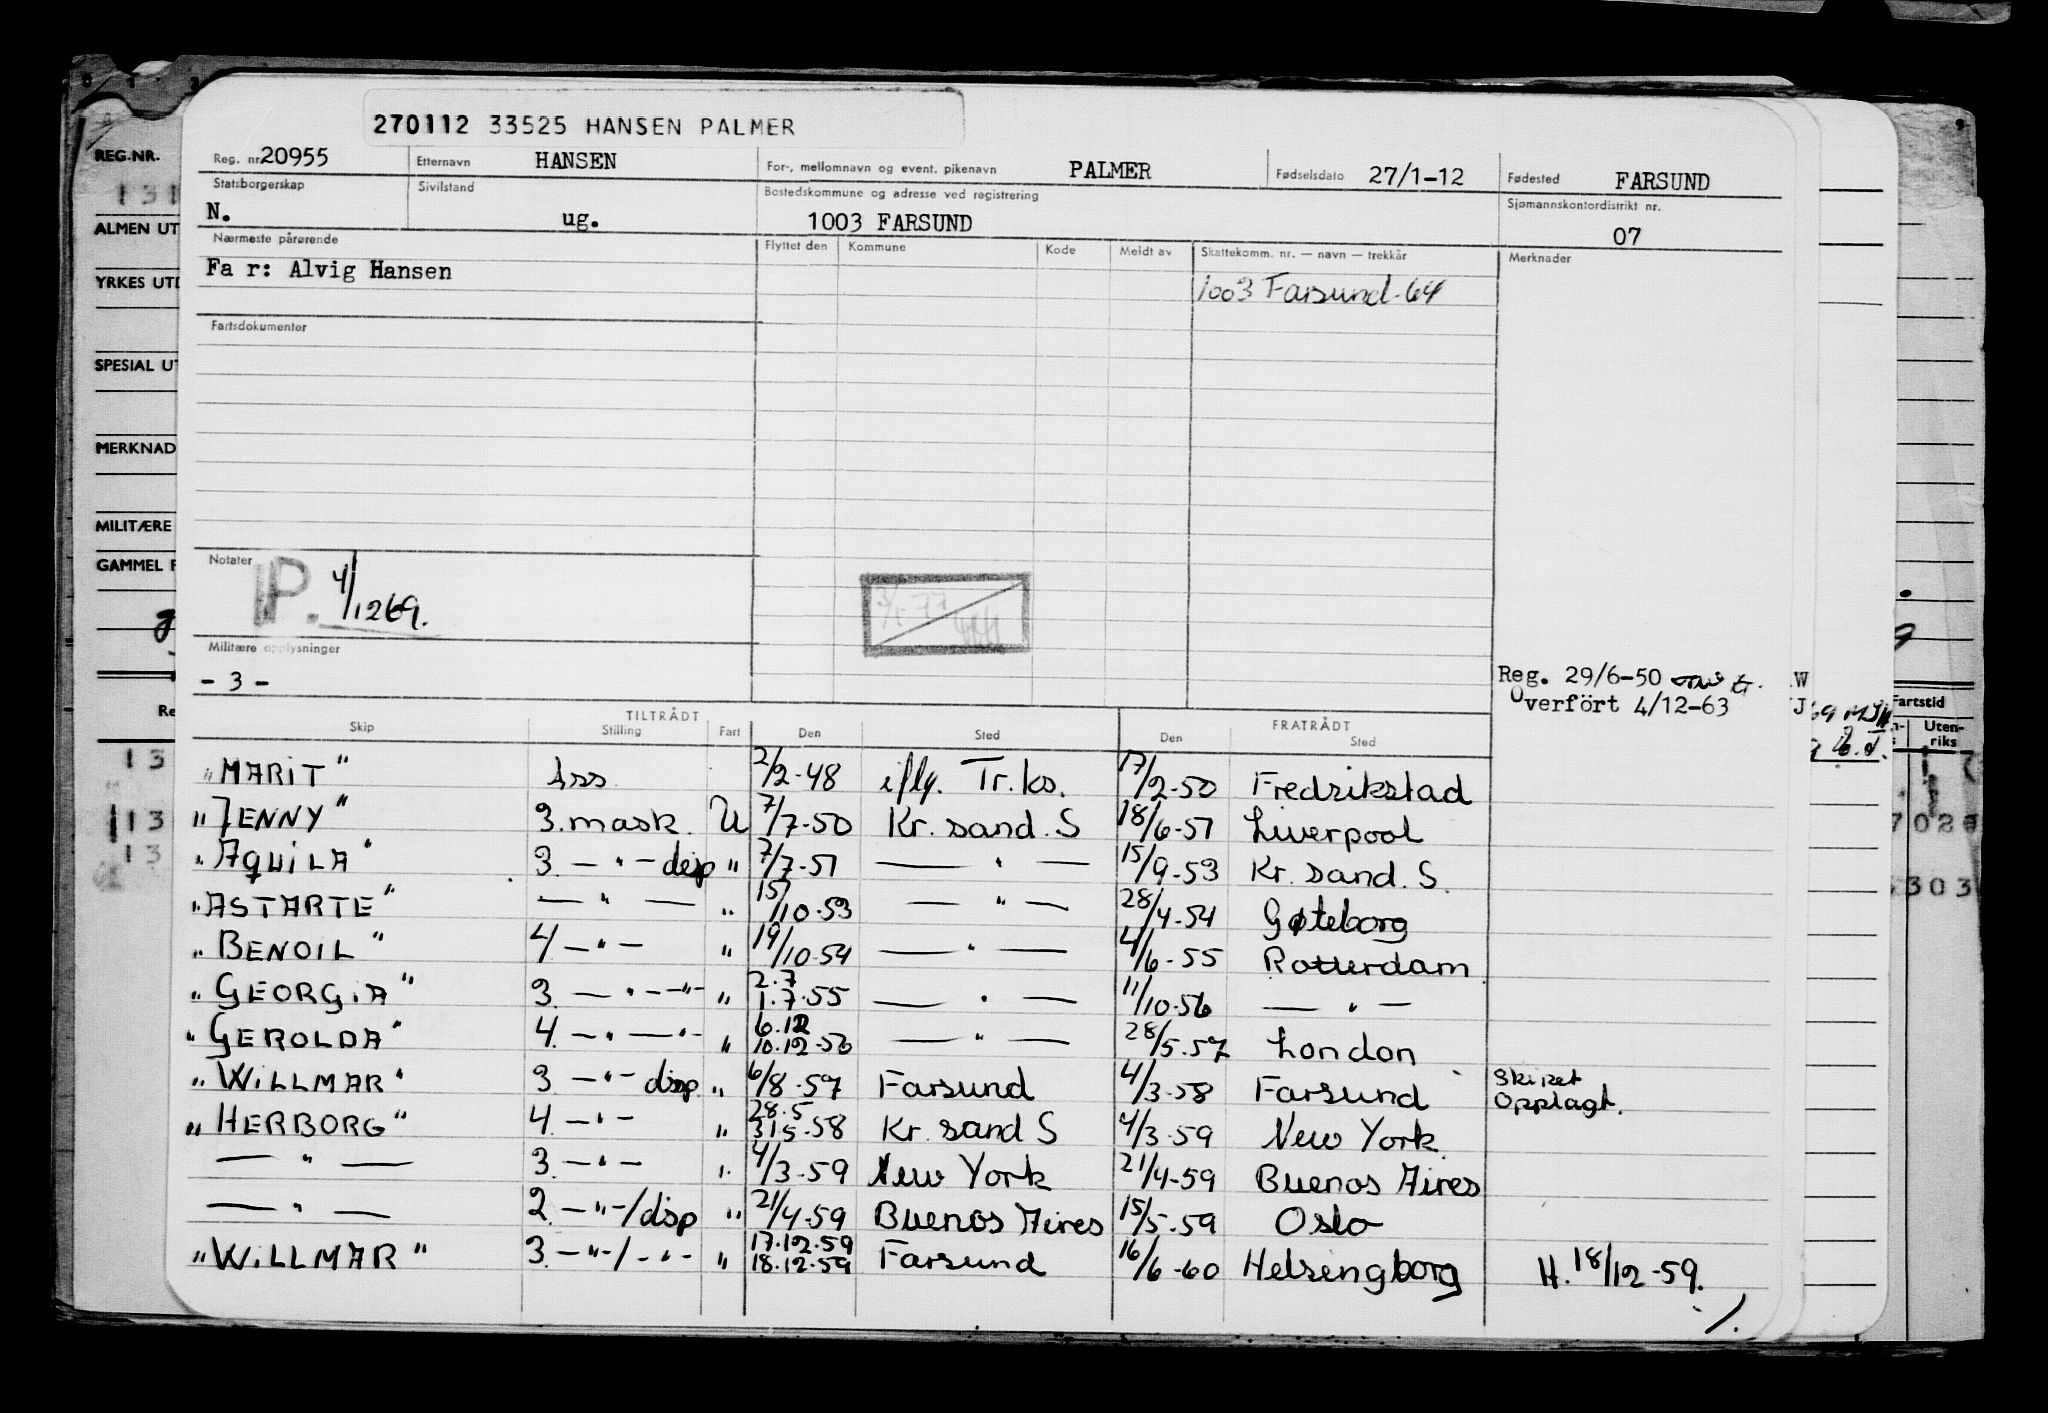 270112 33525 HANSEN PALMER
Reg. nr. 20955 Etternavn HANSEN For-, mellomnavn og event. pikenavn PALMER Fødselsdato 27/1-12 Fødested FARSUND
Statsborgerskap N. Sivilstand ug. Bostedskommune og adresse ved registrering 1003 FARSUND Sjømannskontordistrikt nr. 07
Nærmeste pårørende Flyttet den Kommune Kode Meldt av Skattekomm. nr. — navn — trekkår Merknader
Fa r: Alvig Hansen 1003 Farsund-64
Fartsdokumenter
Notater
P. 4/1269.
Militære opplysninger
- 3 -
Reg. 29/6-50
Overfört 4/12-63
TILTRÅDT FRATRÅDT
Skip Stilling Fart Den Sted Den Sted
"MARIT" Ass 2/2-48 iflg. Tr.ks. 17/2-50 Fredrikstad
"JENNY" 3.mask. U 7/7-50 Kr.sand.S 18/6-51 Liverpool
"AQUILA" 3. — " — disp " 7/7-51 — " — 15/9-53 Kr.sand.S.
"ASTARTE" — " — " 15/10-53 — " — 28/4-54 Gøteborg
"BENOIL" 4 — " — " 19/10-54 — " — 4/6-55 Rotterdam
"GEORGIA" 3. — " — " — " 2.7 1.7-55 — " — 11/10-56 — " —
"GEROLDA" 4. — " — " — " 6.12 10.12-56 — " — 28/5-57 London
"WILLMAR" 3 — " — disp. " 6/8-57 Farsund 4/3-58 Farsund Skipet opplagt.
"HERBORG" 4. — " — " 28.5 31.5-58 Kr.sand S 4/3-59 New York.
— " — 3. — " — " 4/3-59 New York 21/4-59 Buenos Aires
— " — 2. — " — /disp " 21/4-59 Buenos Aires 15/5-59 Oslo
"WILLMAR" 3. — " — / — " — " 17.12.59 18.12.59 Farsund 16/6-60 Helsingborg H. 18/12-59.
REG.NR.
ALMEN UT
YRKES UTD
SPESIAL UT
MERKNAD
MILITÆRE
GAMMEL F
Re
13
13
13
Fartstid
Uten-
riks
303